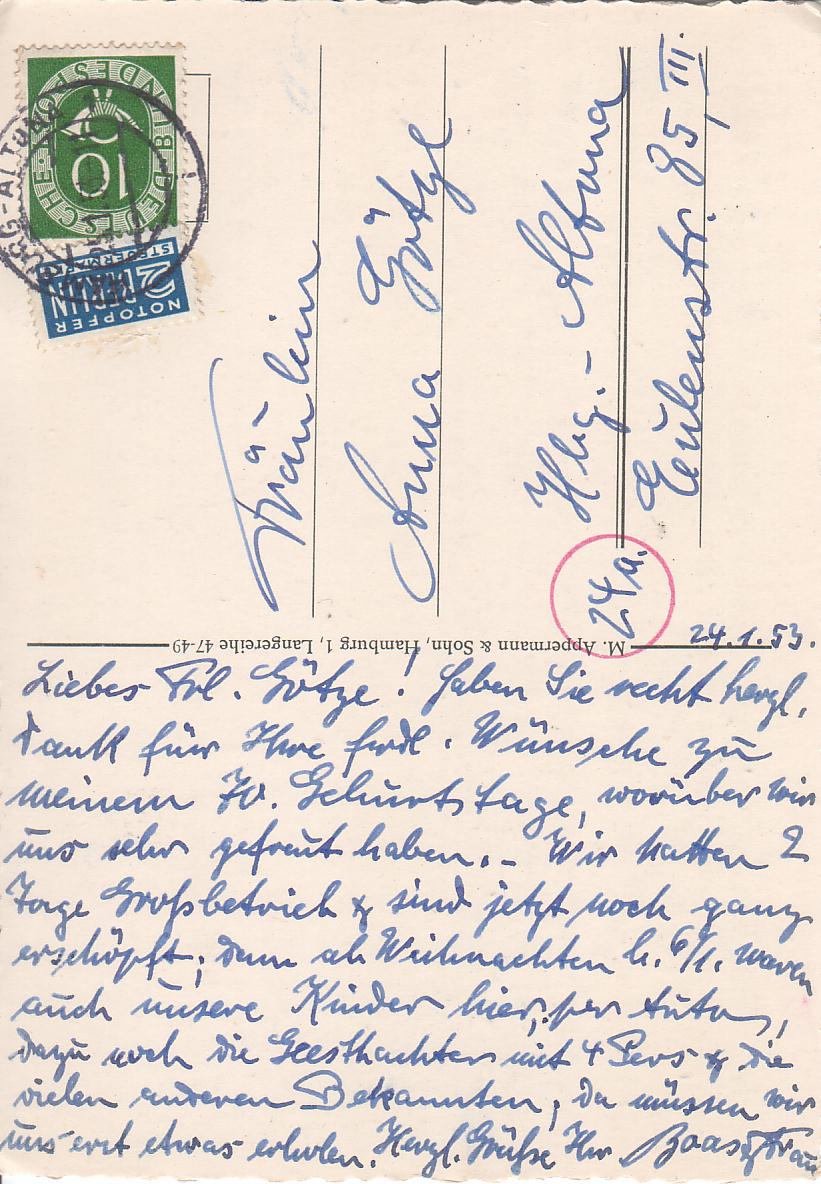 DEUTSCHE BUNDESPOST
10
NOTOPFER
2 BERLIN
STEUERMARKE
HAMBURG-ALTONA 1
Fräulein
Anna Götze
Hbg.-Altona
Eulenstr. 85, III.
24a.
M. Appermann & Sohn, Hamburg 1, Langereihe 47-49
24.1.53.
Liebes Frl. Götze! Haben Sie recht herzl.
Dank für Ihre frdl. Wünsche zu
meinem 70. Geburtstage, worüber wir
uns sehr gefreut haben. – Wir hatten 2
Tage Großbetrieb & sind jetzt noch ganz
erschöpft; denn ab Weihnachten b. 6/1. waren
auch unsere Kinder hier, per Auto,
dazu noch die Geesthachter mit 4 Pers & die
vielen anderen Bekannten, da müssen wir
uns erst etwas erholen. Herzl. Grüße Ihr Boas & Frau